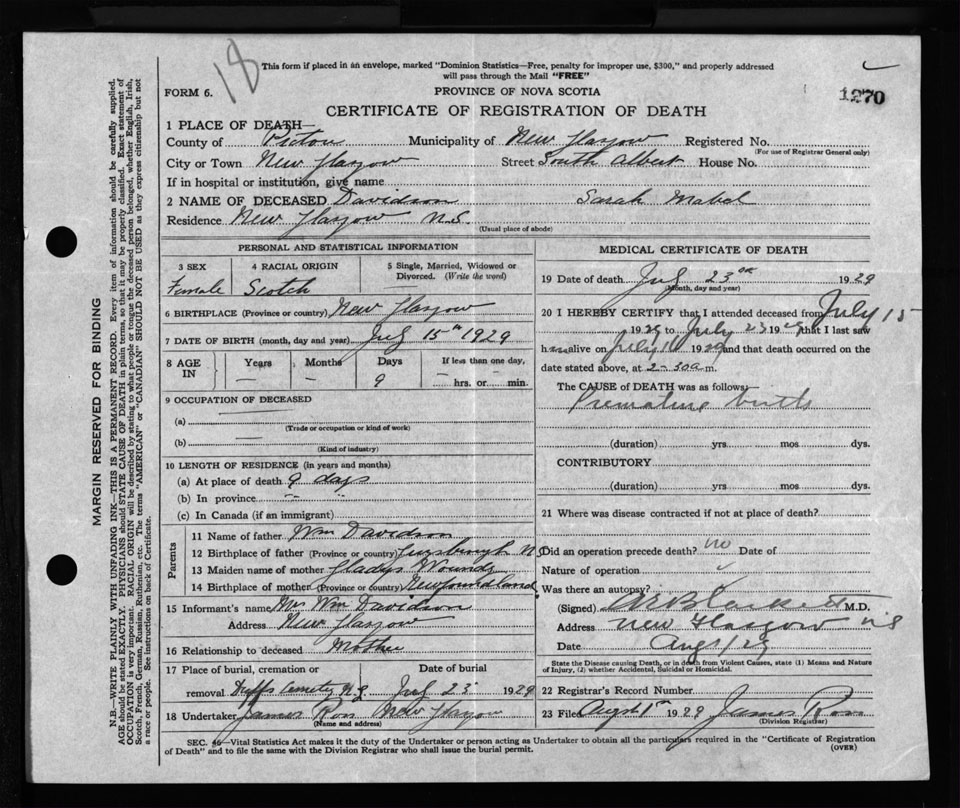 18
This form if placed in an envelope, marked "Dominion Statistics—Free, penalty for improper use, $300," and properly addressed
will pass through the Mail "FREE"
FORM 6.
PROVINCE OF NOVA SCOTIA
1270
CERTIFICATE OF REGISTRATION OF DEATH
1 PLACE OF DEATH—
County of Pictou Municipality of New Glasgow Registered No.
(For use of Registrar General only)
City or Town New Glasgow Street South Albert House No.
If in hospital or institution, give name
2 NAME OF DECEASED Davidson Sarah Mabel
Residence New Glasgow N.S
(Usual place of abode)
MARGIN RESERVED FOR BINDING
N.B.—WRITE PLAINLY WITH UNFADING INK—THIS IS A PERMANENT RECORD. Every item of information should be carefully supplied.
AGE should be stated EXACTLY. PHYSICIANS should STATE CAUSE OF DEATH in plain terms, so that it may be properly classified. Exact statement of
OCCUPATION is very important. RACIAL ORIGIN will be described by stating to what people or tongue the deceased person belonged, whether English, Irish,
Scotch, French, German, Russian, Ruthenian, etc. The terms "AMERICAN" or "CANADIAN" SHOULD NOT BE USED as they express citizenship but not
a race or people. See instructions on back of Certificate.
PERSONAL AND STATISTICAL INFORMATION
3 SEX
Female
4 RACIAL ORIGIN
Scotch
5 Single, Married, Widowed or
Divorced. (Write the word)
6 BIRTHPLACE (Province or country) New Glasgow
7 DATE OF BIRTH (month, day and year) July 15th 1929
8 AGE IN
Years Months Days If less than one day,
— — 9 — hrs. or — min.
9 OCCUPATION OF DECEASED
(a)
(Trade or occupation or kind of work)
(b) —
(Kind of industry)
10 LENGTH OF RESIDENCE (in years and months)
(a) At place of death 9 days
(b) In province " "
(c) In Canada (if an immigrant)
Parents
11 Name of father Wm Davidson
12 Birthplace of father (Province or country) N.S
13 Maiden name of mother Gladys Wounds
14 Birthplace of mother (Province or country) Newfoundland
15 Informant's name Mrs Wm Davidson
Address New Glasgow
16 Relationship to deceased Mother
17 Place of burial, cremation or Date of burial
removal Duffs Cemetery N.G. July 23 1929
18 Undertaker James Ross New Glasgow
(Name and address)
MEDICAL CERTIFICATE OF DEATH
19 Date of death July 23rd 1929
(Month, day and year)
20 I HEREBY CERTIFY that I attended deceased from July 15
1929 to July 23 1929 that I last saw
h alive on July 16 1929 and that death occurred on the
date stated above, at 2-30a m.
The CAUSE of DEATH was as follows:—
Premature birth
(duration) yrs mos dys.
CONTRIBUTORY
(duration) yrs mos dys.
21 Where was disease contracted if not at place of death?
Did an operation precede death? no Date of
Nature of operation
Was there an autopsy?
(Signed) M.D.
Address New Glasgow NS
Date Aug 1/29
State the Disease causing Death, or in death from Violent Causes, state (1) Means and Nature
of Injury, (2) whether Accidental, Suicidal or Homicidal.
22 Registrar's Record Number
23 Filed August 1st 1929 James Ross
(Division Registrar)
SEC. 46—Vital Statistics Act makes it the duty of the Undertaker or person acting as Undertaker to obtain all the particulars required in the "Certificate of Registration
of Death" and to file the same with the Division Registrar who shall issue the burial permit.
(OVER)